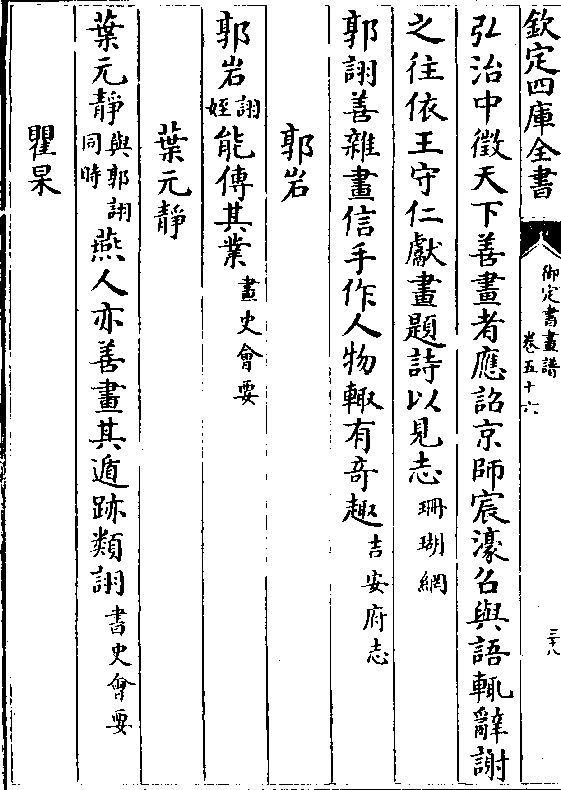 欽定四庫全書
御定書畫譜
卷五十六
三十八
弘治中徵天下善畫者應詔京師宸濠召與語輒辭謝
之往依王守仁獻畫題詩以見志珊瑚網
郭詡善雜畫信手作人物輙有竒趣吉安府志
郭岩
郭岩詡姪能傳其業畫史會要
葉元靜
葉元靜與郭詡同時燕人亦善畫其遁跡類詡書史會要
瞿杲